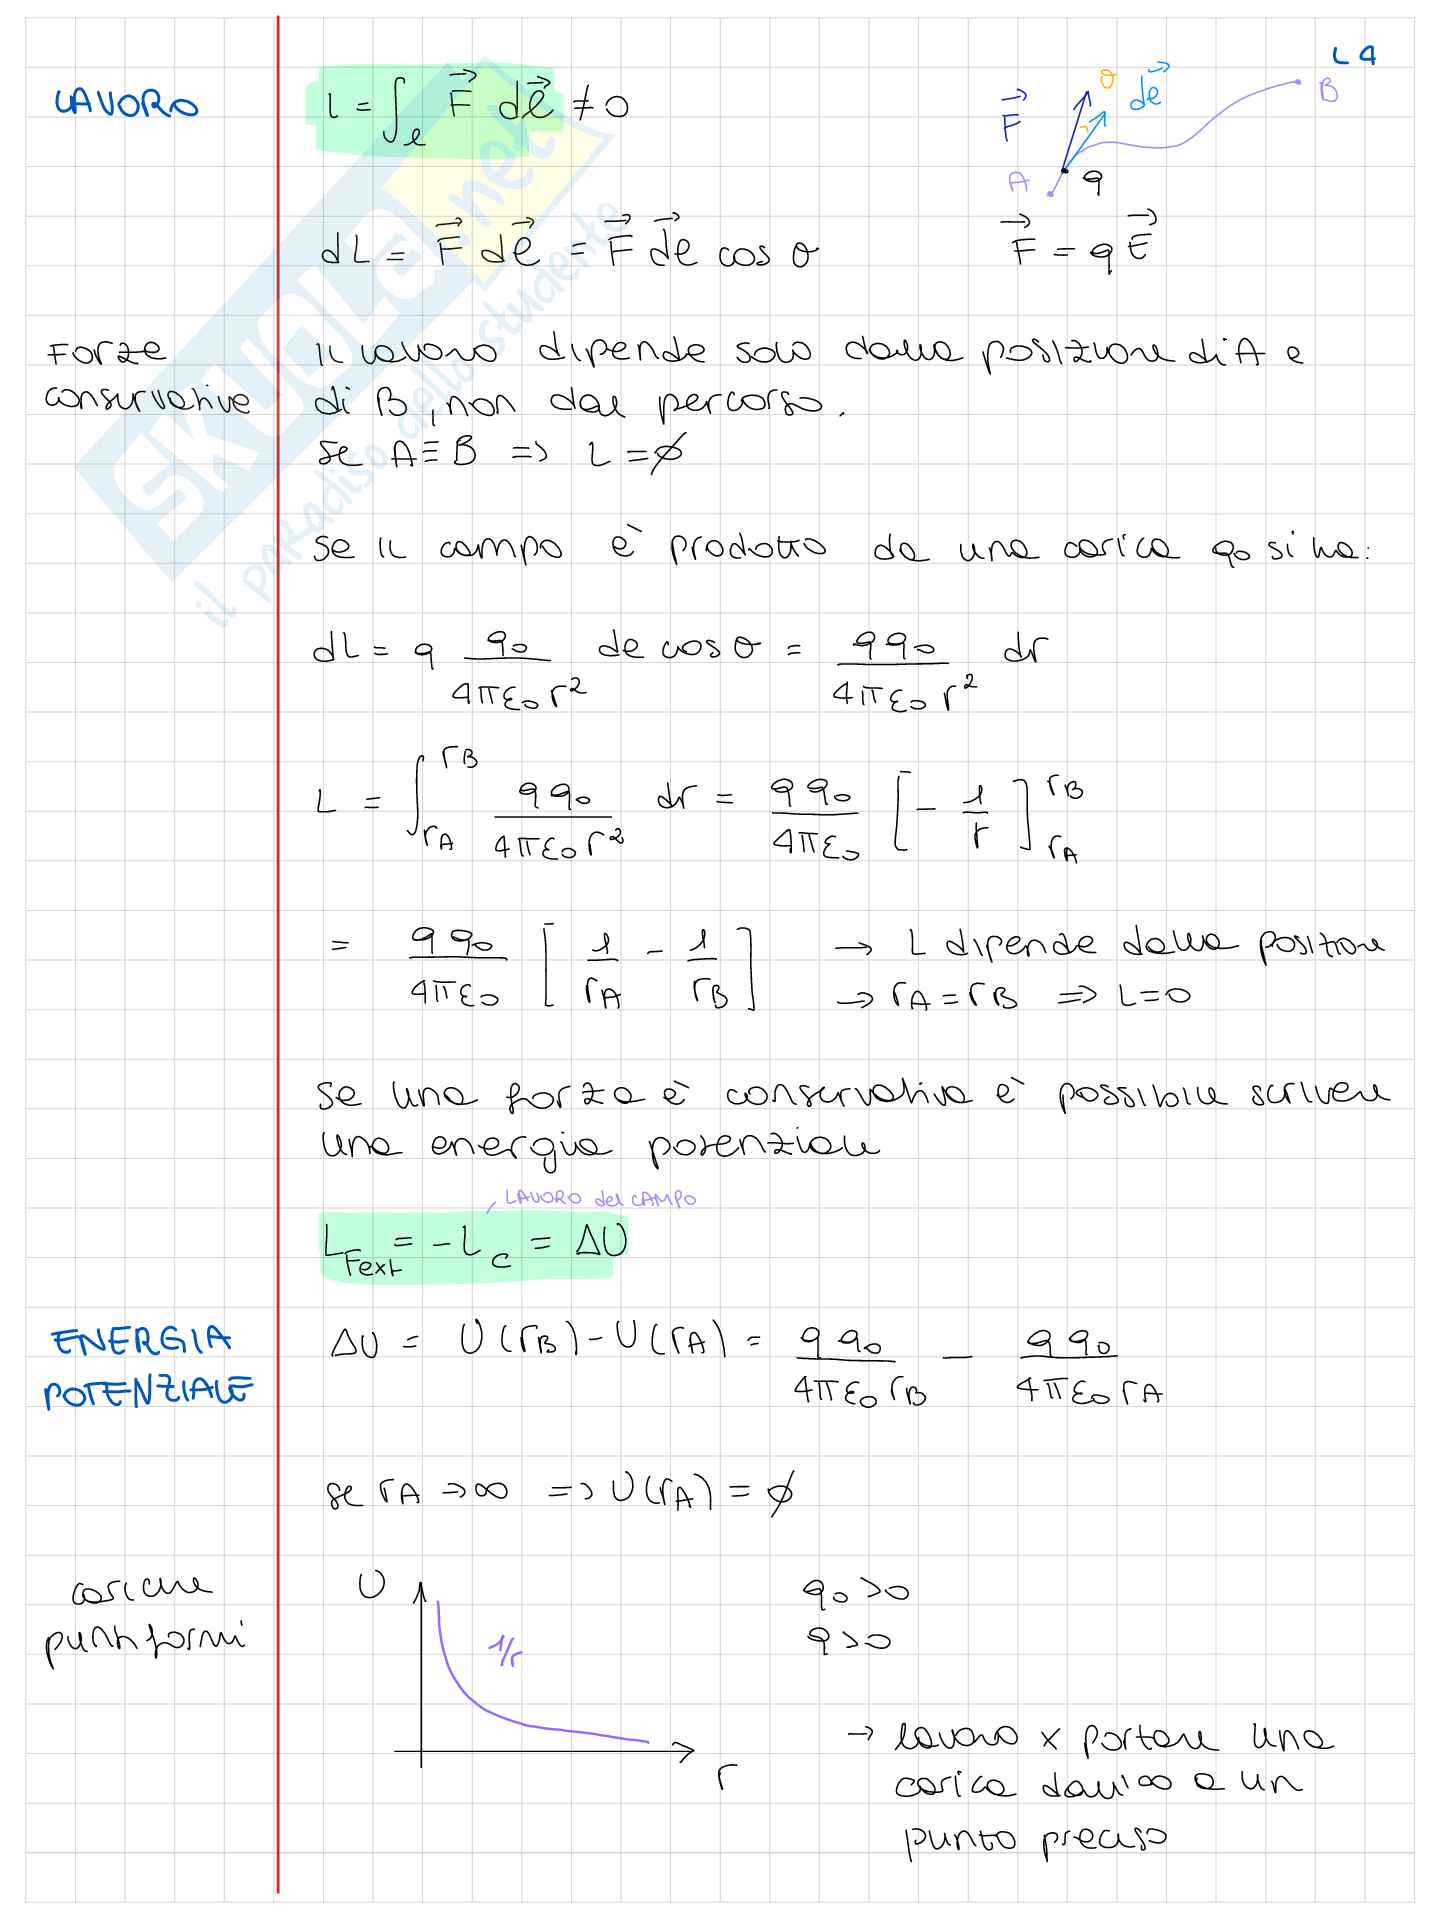 L 4
LAVORO
L = ∫ₑ F⃗ dl⃗ ≠ 0
F⃗
θ
dl⃗
B
A
q
dL = F⃗ dl⃗ = F⃗ dl⃗ cos θ
F⃗ = q E⃗
Forze conservative
Il lavoro dipende solo dalla posizione di A e
di B, non dal percorso.
se A ≡ B => L = ∅
se il campo è prodotto da una carica q₀ si ha:
dL = q q₀/4πε₀r² dl cos θ = qq₀/4πε₀r² dr
L = ∫_rA^rB qq₀/4πε₀r² dr = qq₀/4πε₀ [- 1/r]_rA^rB
= qq₀/4πε₀ [1/rA - 1/rB] → L dipende dalla posizione
→ rA = rB => L = 0
se una forza è conservativa è possibile scrivere
una energia potenziale
LAVORO del CAMPO
L_Fext = -L_c = ΔU
ENERGIA
POTENZIALE
ΔU = U(rB) - U(rA) = qq₀/4πε₀rB - qq₀/4πε₀rA
se rA → ∞ => U(rA) = ∅
cariche
puntiformi
U
1/r
r
q₀ > 0
q > 0
→ lavoro x portare una
carica dall'∞ a un
punto preciso
SKUOLA.net
il paradiso dello studente